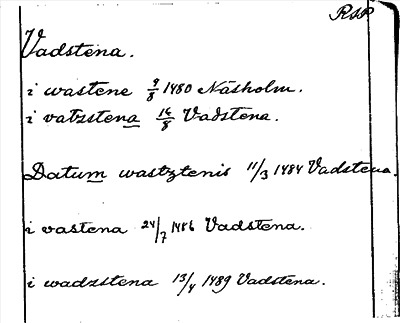 RAP
Vadstena.
i wastene 9/8 1480 Näsholm.
i vatzstena 16/8 Vadstena.
Datum wastztenis 11/3 1484 Vadstena.
i vastena 24/7 1486 Vadstena.
i wadzstena 13/4 1489 Vadstena.